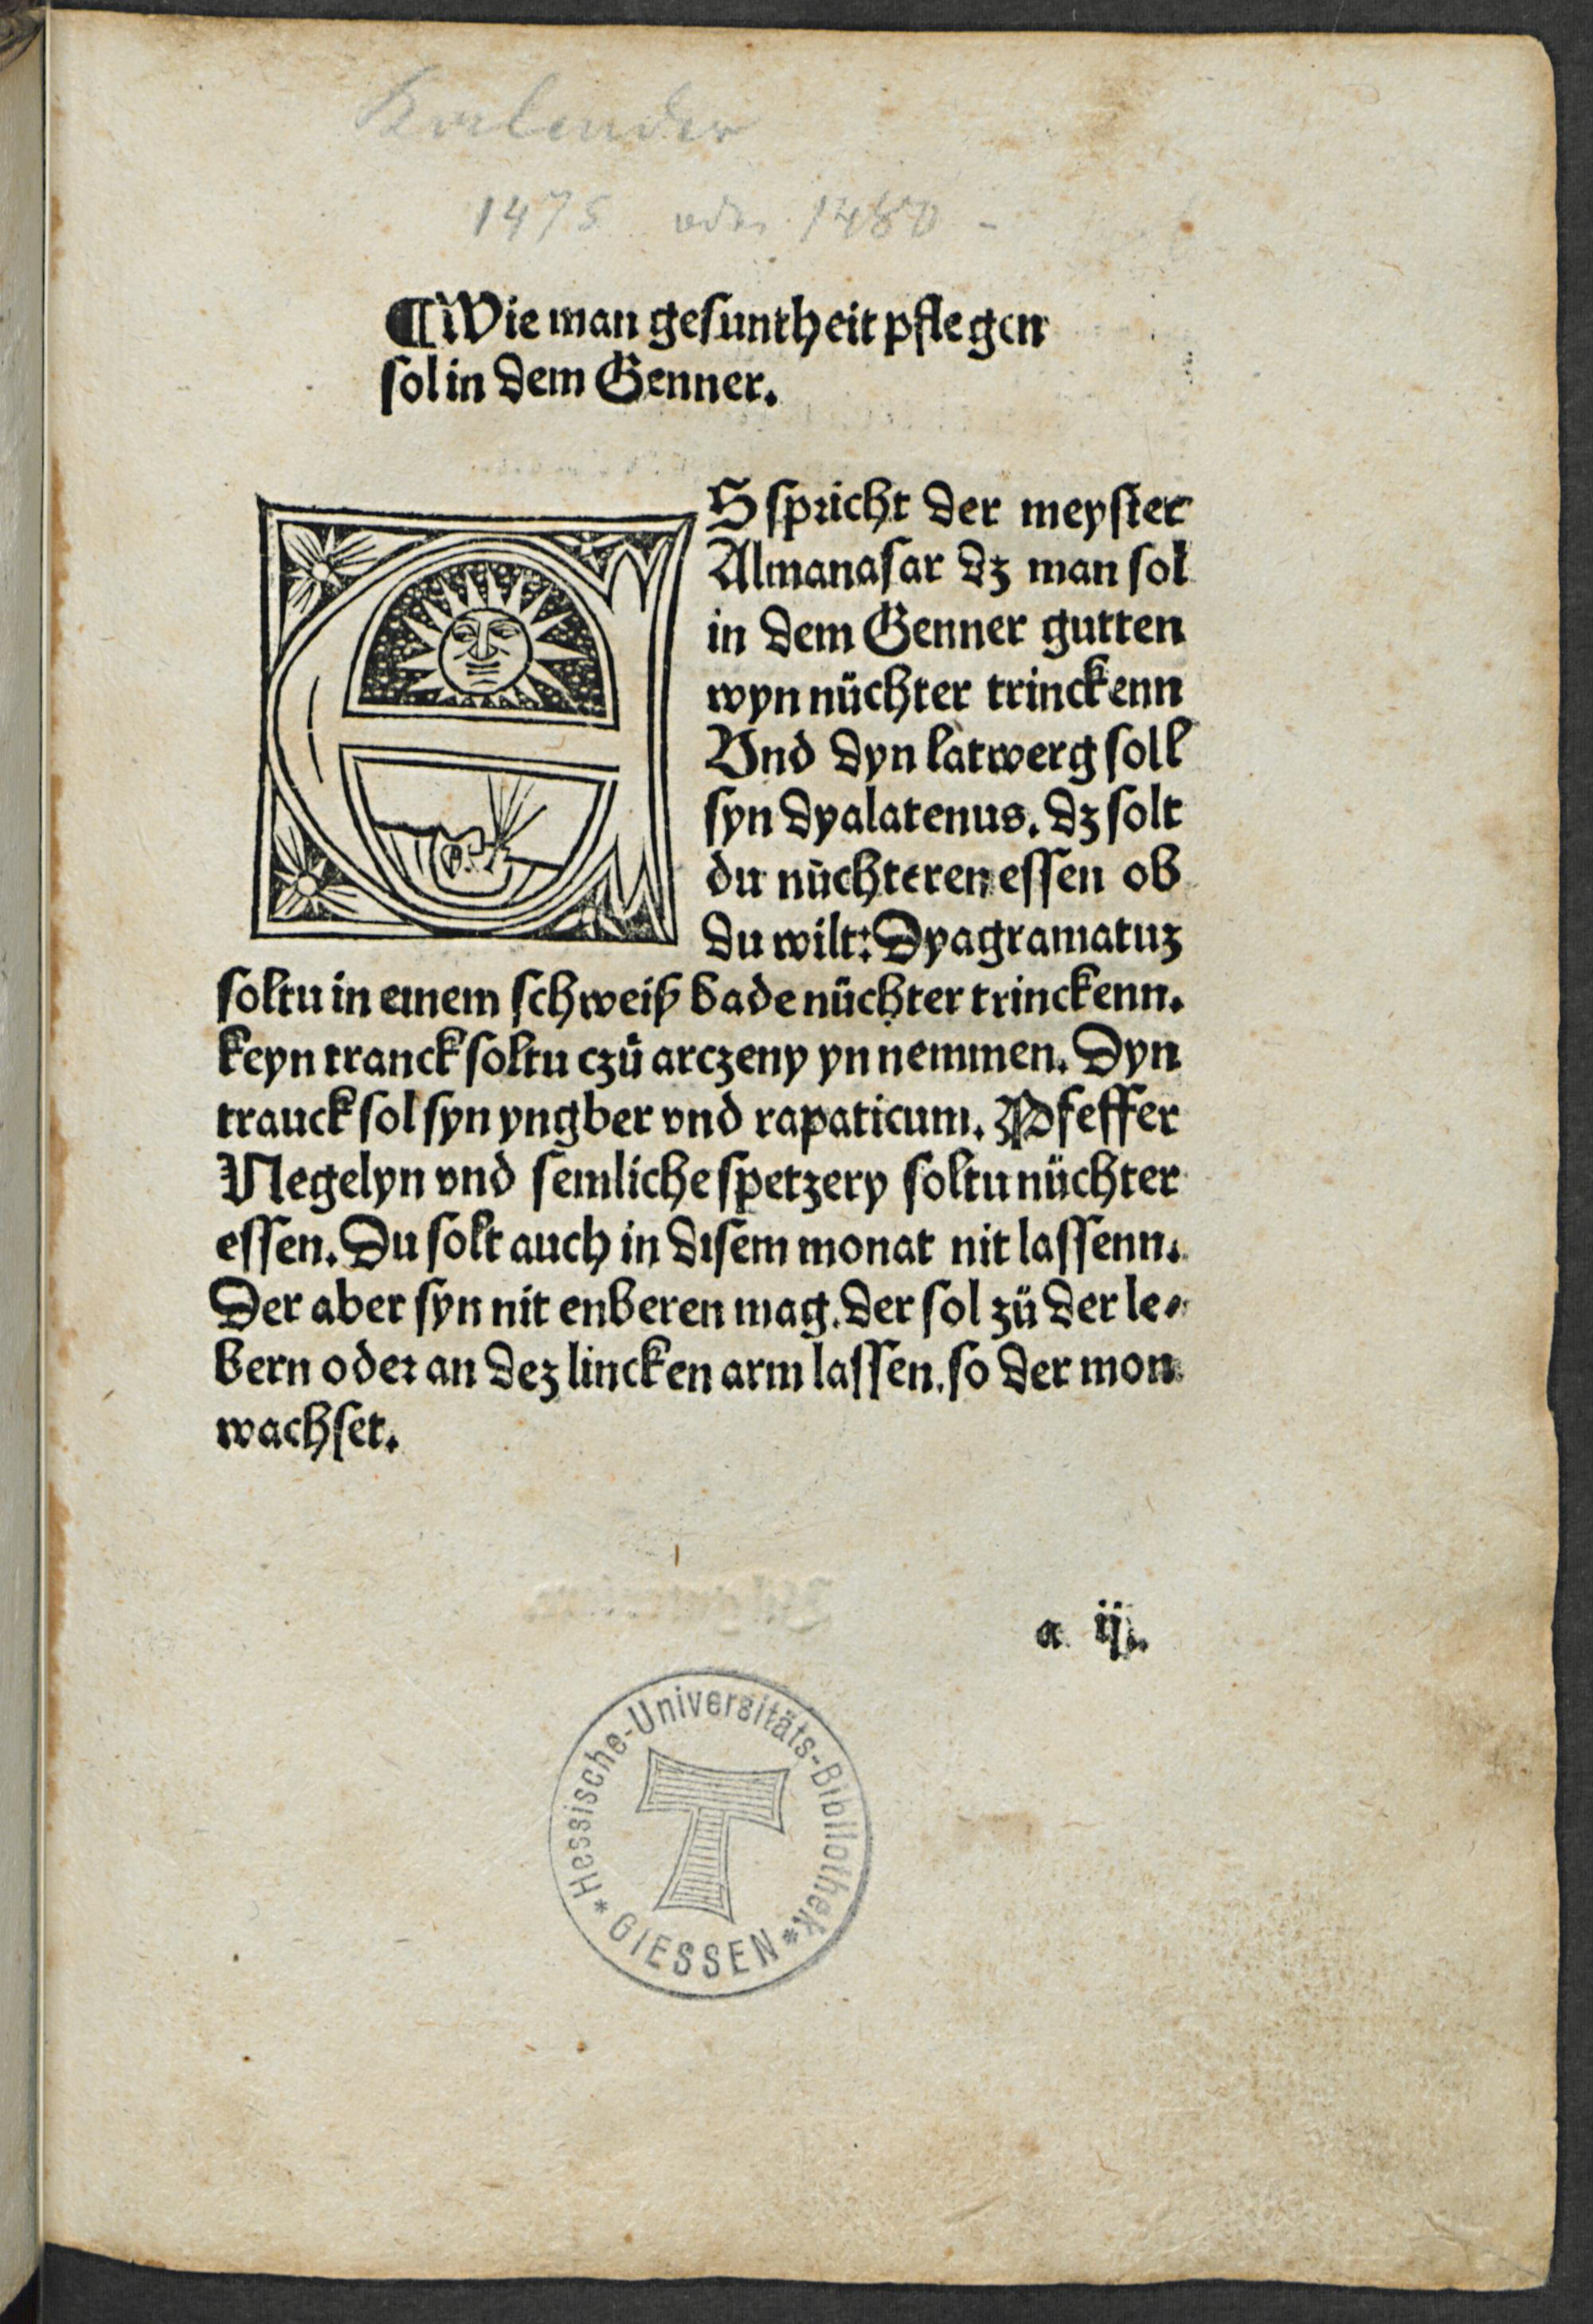 Kalender
1475 oder 1480 -
¶Wie man gesuntheit pflegen
sol in dem Genner.
ES spricht der meyster
Almanasar dz man sol
in dem Genner gutten
wyn nüchter trinckenn
Vnd dyn latwerg soll
syn dyalatenus. dz solt
du nüchteren essen ob
du wilt: Dyagramatuz
soltu in einem schweiß bade nüchter trinckenn.
keyn tranck soltu czů arczeny yn nemmen. Dyn
trauck sol syn yngber vnd rapaticum. Pfeffer
Negelyn vnd semliche spetzery soltu nüchter
essen. Du solt auch in disem monat nit lassenn.
Der aber syn nit enberen mag. der sol zů der le⸗
bern oder an dez lincken arm lassen. so der mon
wachset.
a ij.
*Hessische-Universitäts-Bibliothek*
GIESSEN